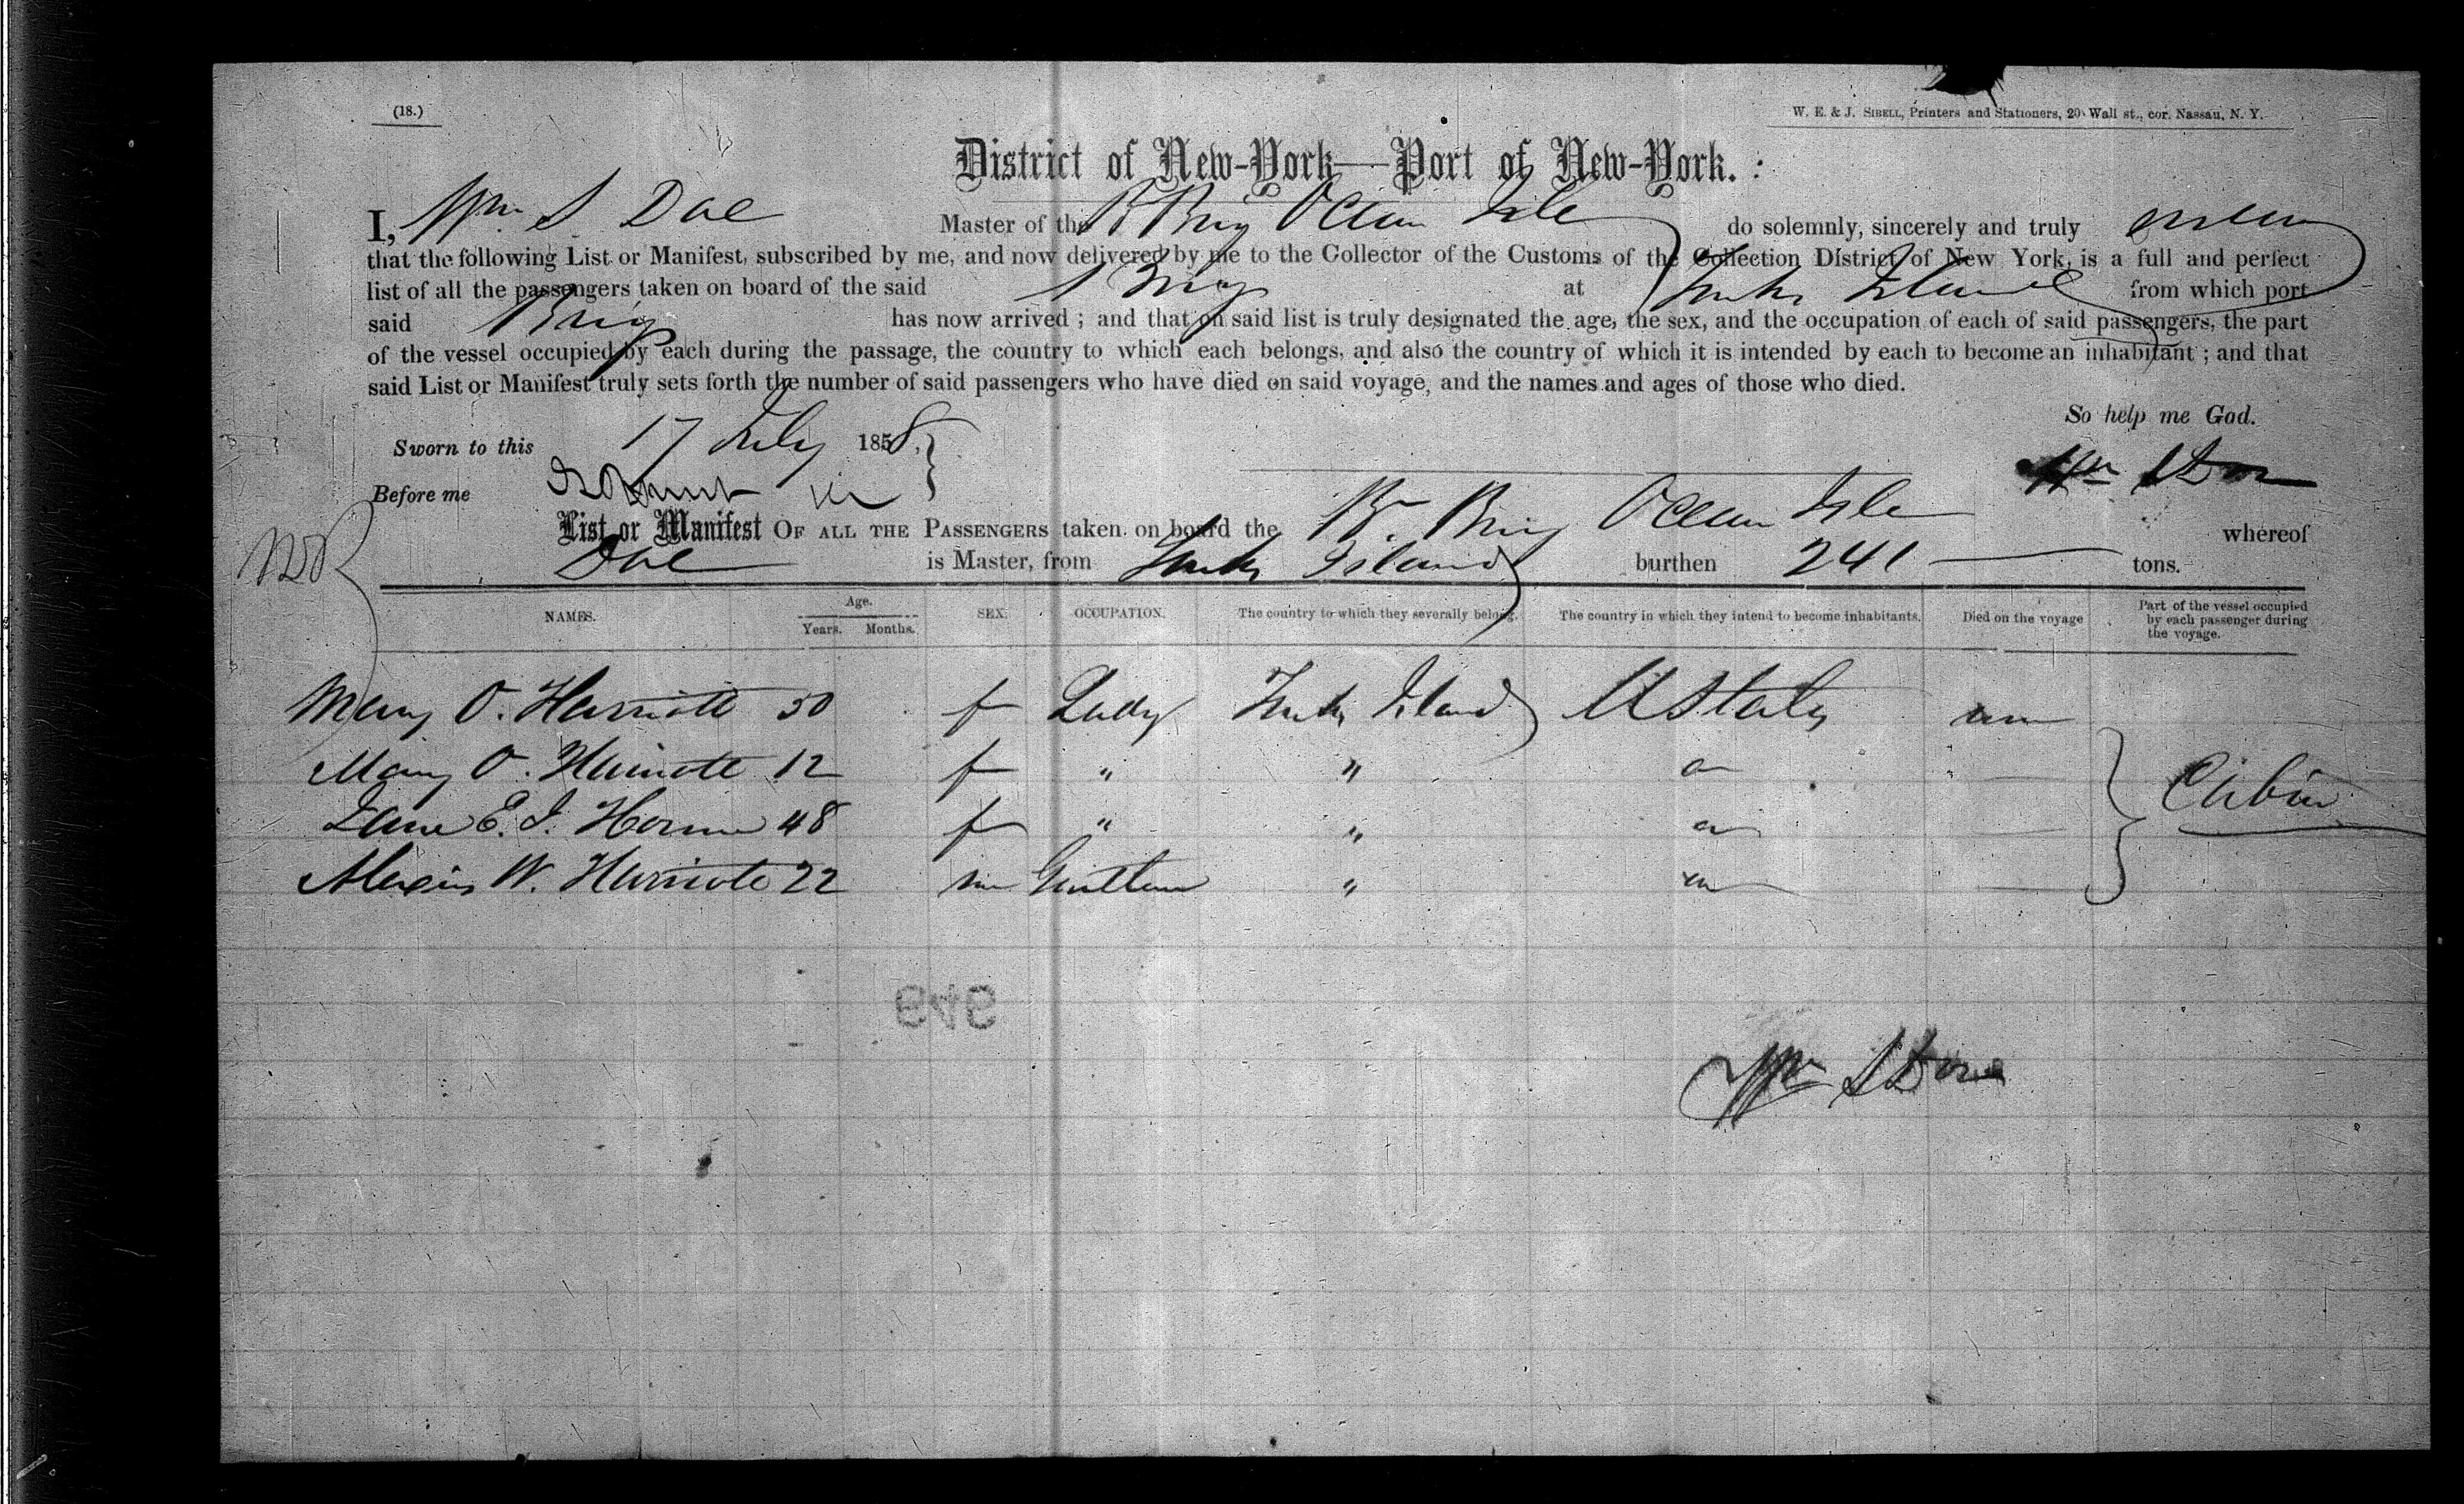 (18.)
W. E. & J. SIBELL, Printers and Stationers, 20 Wall st., cor. Nassau, N. Y.
District of New-York—Port of New-York.
I, Wm. S Doe Master of the Br Brig Ocean Isle do solemnly, sincerely and truly swear
that the following List or Manifest, subscribed by me, and now delivered by me to the Collector of the Customs of the Collection District of New York, is a full and perfect
list of all the passengers taken on board of the said Brig at Turks Island from which port
said Brig has now arrived ; and that on said list is truly designated the age, the sex, and the occupation of each of said passengers, the part
of the vessel occupied by each during the passage, the country to which each belongs, and also the country of which it is intended by each to become an inhabitant ; and that
said List or Manifest truly sets forth the number of said passengers who have died on said voyage, and the names and ages of those who died.
So help me God.
Sworn to this 17 July 1858.
Wm S Doe
Before me
List or Manifest OF ALL THE PASSENGERS taken on board the Br Brig Ocean Isle whereof
Doe is Master, from Turks Island burthen 241 tons.
NAMES. Age. Years. Months. SEX. OCCUPATION. The country to which they severally belong. The country in which they intend to become inhabitants. Died on the voyage Part of the vessel occupied by each passenger during the voyage.
Mary O. Harriott 50 f Lady Turks Island U States
Mary O. Harriott 12 f " "
Jane E. J. Horne 48 f " "
Cabin
Alexis W. Harriott 22 m Gentleman "
946
Wm S Doe